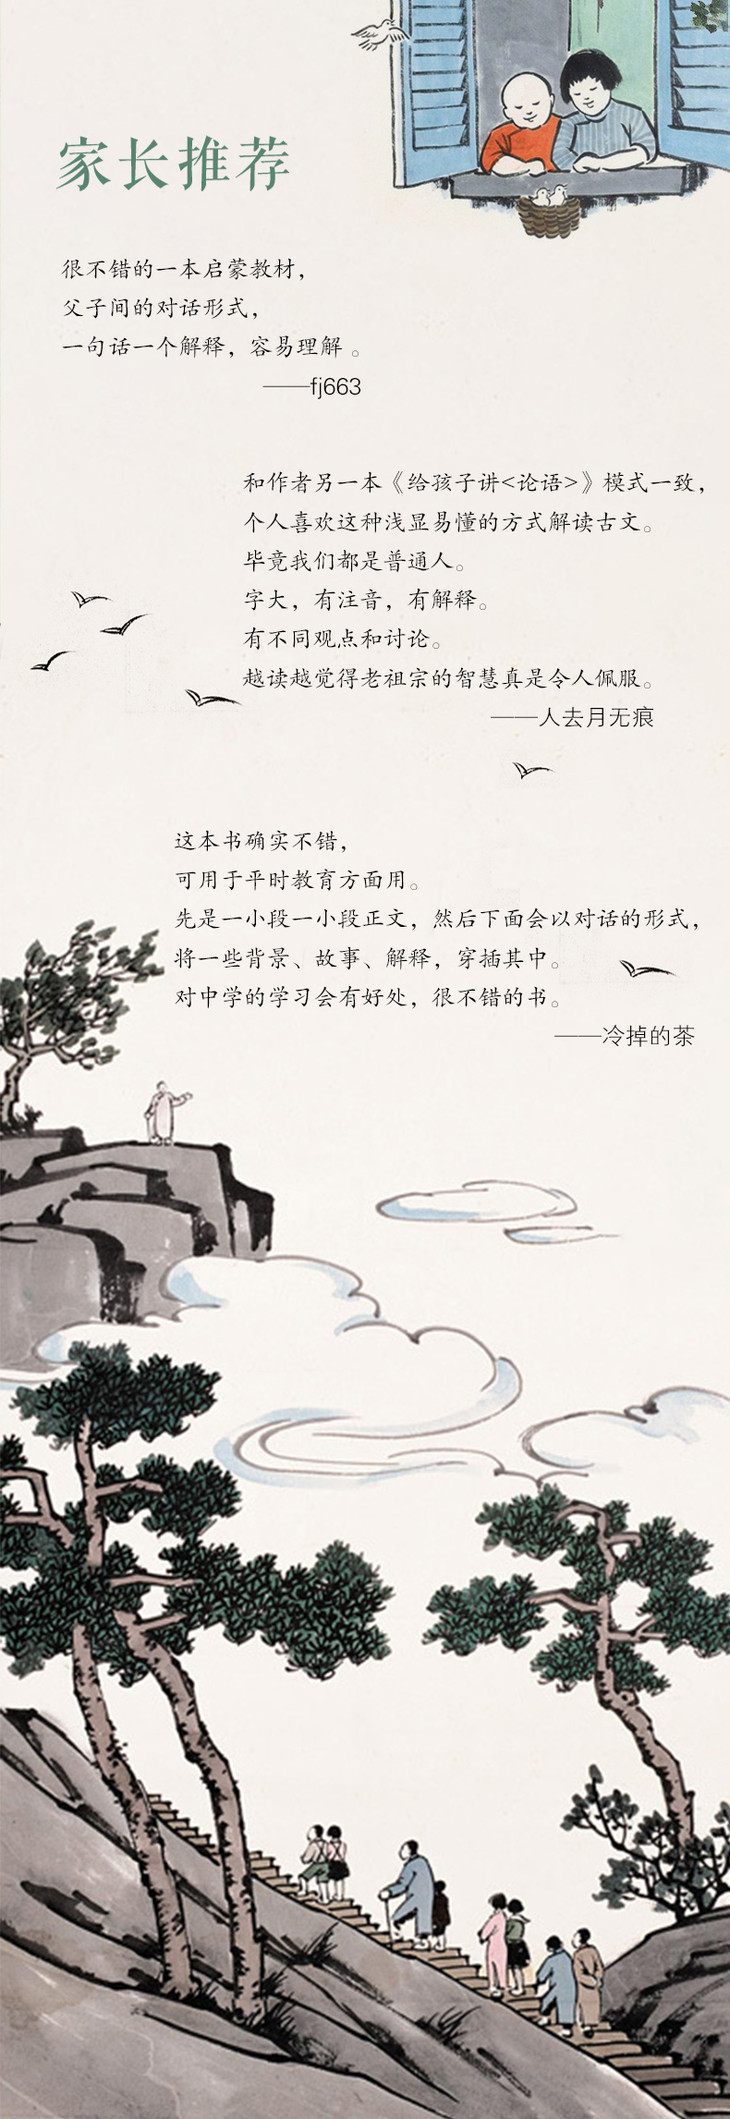 家长推荐
很不错的一本启蒙教材，
父子间的对话形式，
一句话一个解释，容易理解 。
——fj663
和作者另一本《给孩子讲<论语>》模式一致，
个人喜欢这种浅显易懂的方式解读古文。
毕竟我们都是普通人。
字大，有注音，有解释。
有不同观点和讨论。
越读越觉得老祖宗的智慧真是令人佩服。
——人去月无痕
这本书确实不错，
可用于平时教育方面用。
先是一小段一小段正文，然后下面会以对话的形式，
将一些背景、故事、解释，穿插其中。
对中学的学习会有好处，很不错的书。
——冷掉的茶